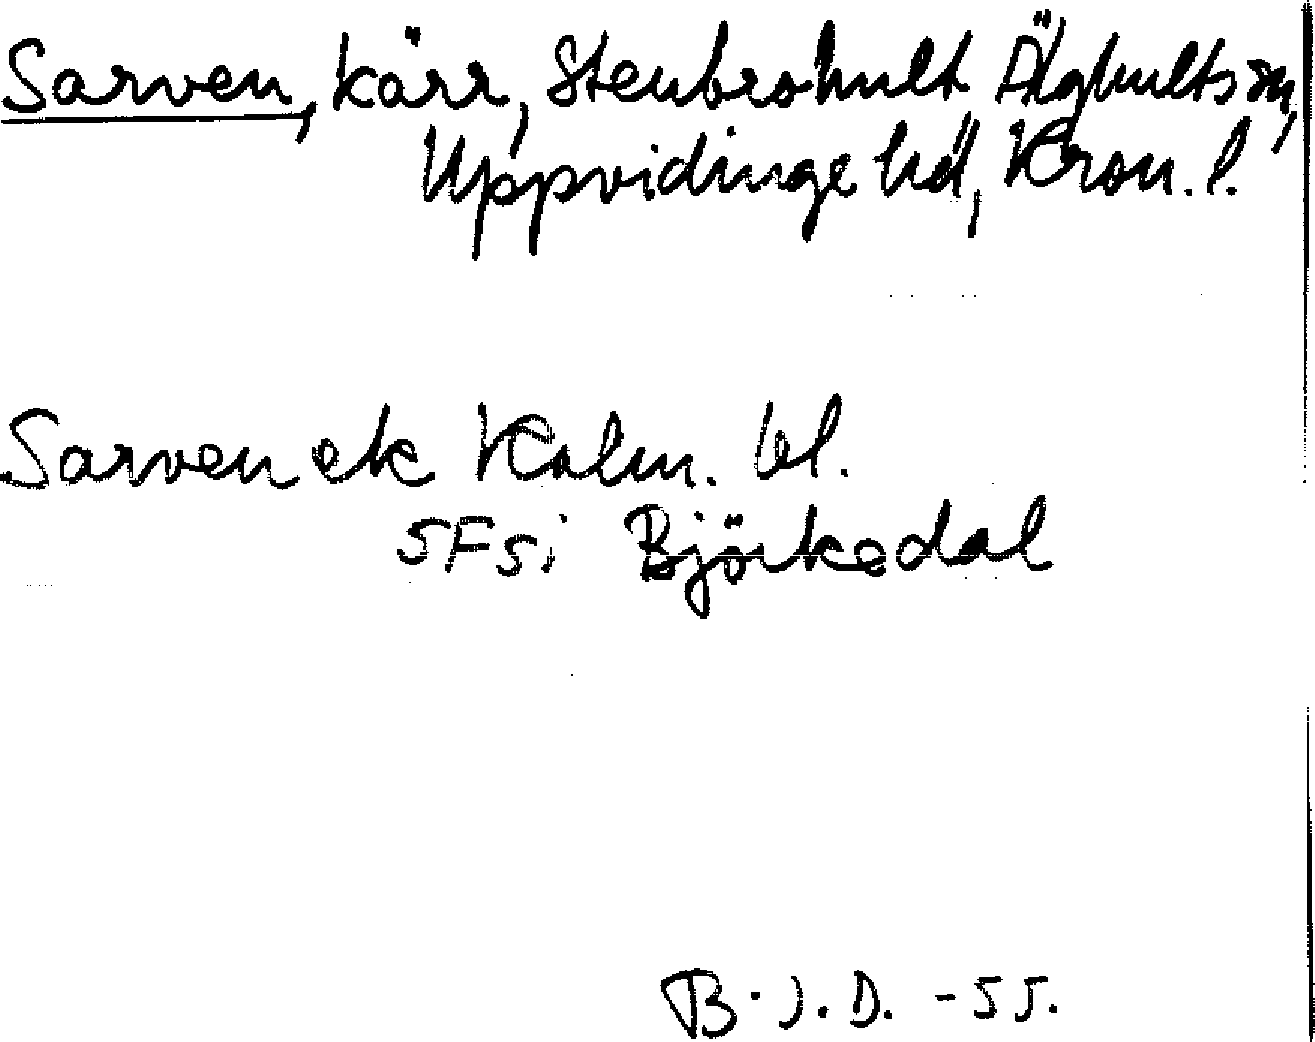 Sarven, kärr, Stenbrohult Älghults sn,
Uppvidinge hd, Kron. l.
Sarven ek Kalm. bl.
5F5i Björkedal
B.J.D. -55.